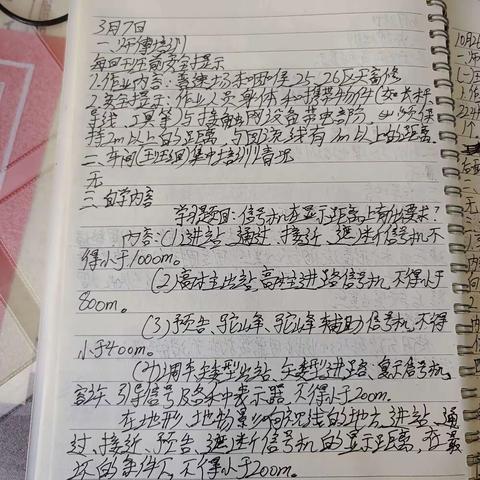 3月7日
一、师傅培训
每日班班前安全提示
1.作业内容:普速场本咽喉25、26区天窗修
2.安全提示:作业人员身体和携带物件(如长杆、
导线、工具等)与接触网设备带电部分,必须保
持2m以上的距离,与回流线有1m以上的距离.
二、车间(班组)集中培训情况
无
三、自学内容
学习题目:信号机在显示距离上有什么要求?
内容:(1)进站、通过、接近、遮断信号机,不
得小于1000m。
(2)高柱出站、高柱进路信号机,不得小于
800m。
(3)预告、驼峰、驼峰辅助信号机,不得
小于400m。
(4)调车、矮型出站、矮型进路、复示信号机,
容许、引导信号及各种表示器,不得小于200m.
在地形、地物影响视线的地方,进站、通
过、接近、预告、遮断信号机的显示距离,在最
坏的条件下,不得小于200m。
10月2